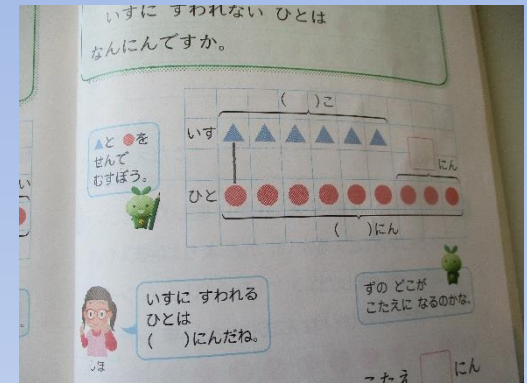 いすに すわれない ひとは
なんにんですか。
(　)こ
いす
▲と ●を
せんで
むすぼう。
にん
ひと
(　)にん
いすに すわれる
ひとは
(　)にんだね。
ずの どこが
こたえに なるのかな。
しほ
こたえ □にん